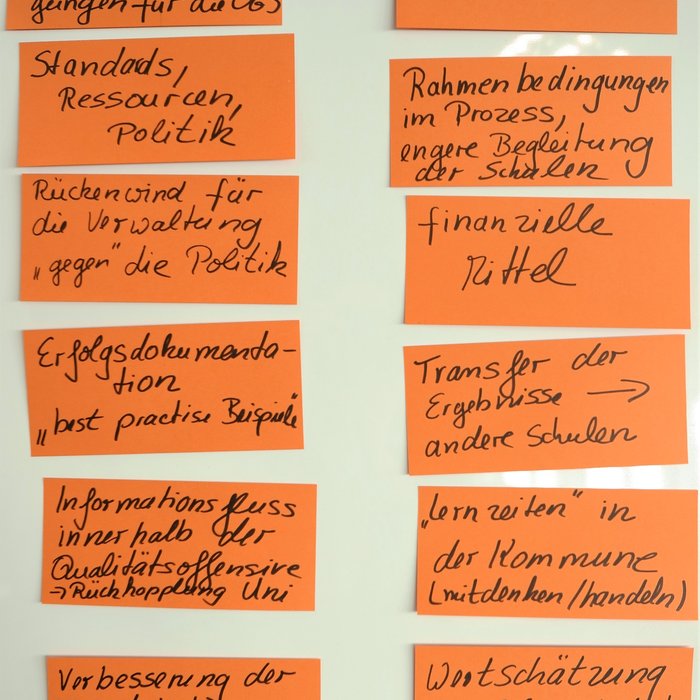 gungen für die OGS
Standads,
Ressourcen,
Politik
Rückenwind für
die Verwaltung
„gegen" die Politik
Erfolgsdokumenta-
tion
„best practise Beispiele"
Informationsfluss
innerhalb der
Qualitätsoffensive
→ Rückkopplung Uni
Verbesserung der
Rahmenbedingungen
im Prozess,
engere Begleitung
der Schulen
finanzielle
Mittel
Transfer der
Ergebnisse →
andere Schulen
„Lernzeiten" in
der Kommune
(mitdenken/handeln)
Wertschätzung